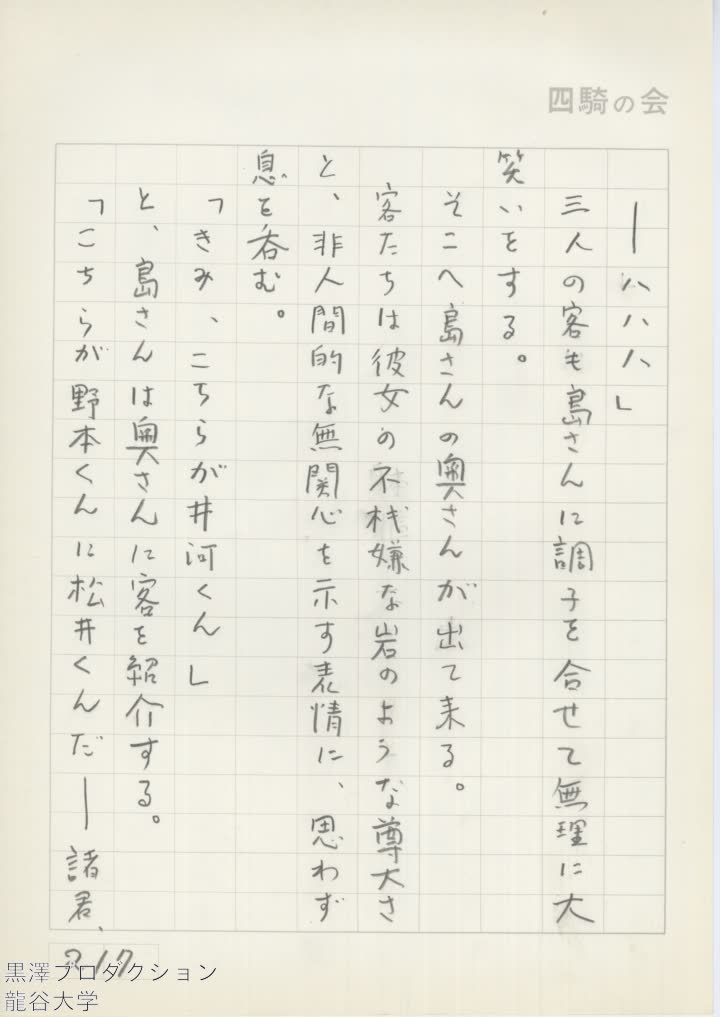 四騎の会
―ハハハ」
三人の客も島さんに調子を合せて無理に大
笑いをする。
そこへ島さんの奥さんが出て来る。
客たちは彼女の不栈嫌な岩のような尊大さ
と、非人間的な無関心を示す表情に、思わず
息を呑む。
「きみ、こちらが井河くん」
と、島さんは奥さんに客を紹介する。
「こちらが野本くんに松井くんだ―諸君、
黒澤プロダクション
龍谷大学